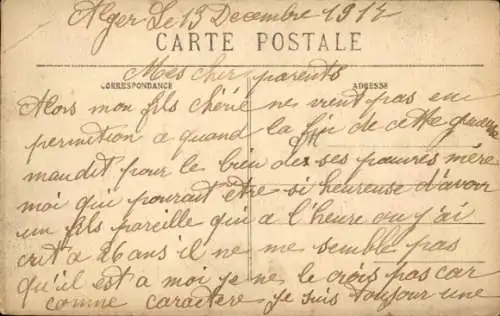 Alger Le 13 Decembre 1917
CARTE POSTALE
Mes cher parents
CORRESPONDANCE
ADRESSE
Alors mon fils chérie ne vient pas en
permition a quand la fin de cette guerre
maudit pour le bien des ses pauvres mère
moi qui pourait être si heureuse d'avoir
un fils pareille qui a l'heure ou j'ai
crit a 26 ans il ne me semble pas
qu'il est a moi je ne le crois pas car
comme caractère je suis toujour une